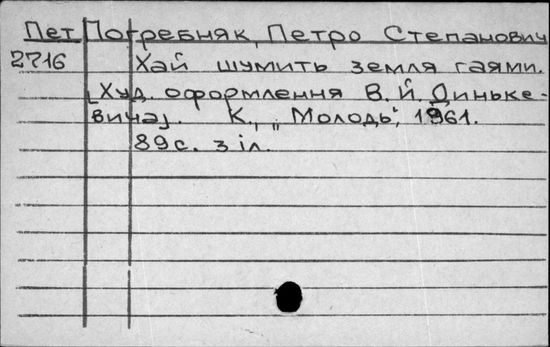 Пет Погребняк, Петро Степанович
2716 Хай шумить земля гаями.
[Худ. оформлення В. Й. Динькевича].
К., „Молодь", 1961.
89с. з іл.